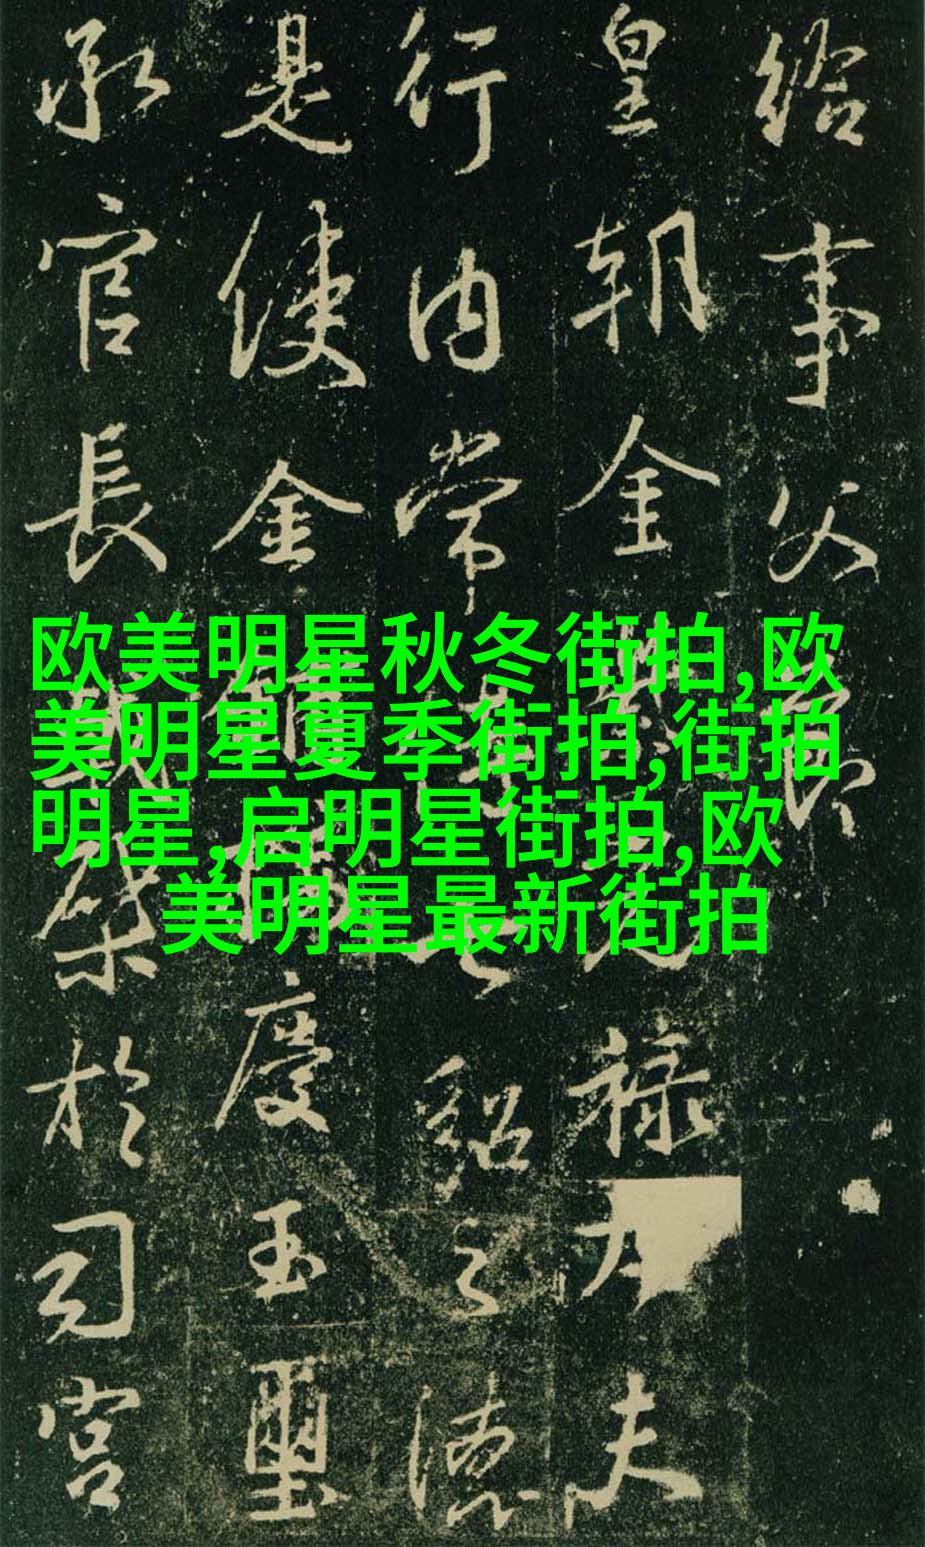 給事父
皇朝金
祿大夫
行內常
紹之德
是使金
慶玉璽
承官長
於司宮
欧美明星秋冬街拍,欧
美明星夏季街拍,街拍
明星,启明星街拍,欧
美明星最新街拍